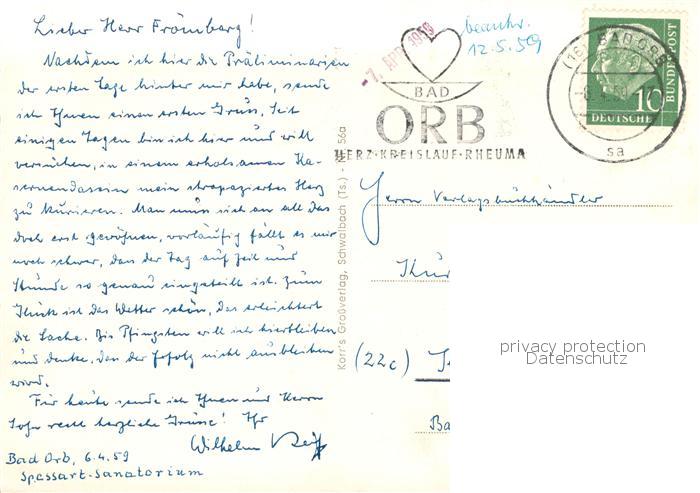 Lieber Herr Frömberg!
Nachdem ich hier die Präliminarien
der ersten Tage hinter mir habe, sende
ich Ihnen einen ersten Gruss. Seit
einigen Tagen bin ich hier und will
versuchen, in einem erholsamen Ka-
sernendasein mein strapaziertes Herz
zu kurieren. Man muss sich an all das
doch erst gewöhnen, vorläufig fällt es mir
noch schwer, dass der Tag auf Zeit und
Stunde so genau eingeteilt ist. Zum
Glück ist das Wetter schön, das erleichtert
die Sache. Bis Pfingsten will ich hierbleiben
und denke, dass der Erfolg nicht ausbleiben
wird.
Für heute sende ich Ihnen und Herrn
Sohn recht herzliche Grüsse! Ihr
Wilhelm
Bad Orb, 6.4.59
Spessart-Sanatorium
Karr's Großverlag, Schwalbach (Ts.) - Nr. 56a
-7. APR. 1959
beantw.
12.5.59
BAD
ORB
HERZ·KREISLAUF·RHEUMA
(16) BAD ORB
sa
10
DEUTSCHE
BUNDESPOST
Herrn Verlagsbuchhändler
Kur
(22c)
Ba
privacy protection
Datenschutz